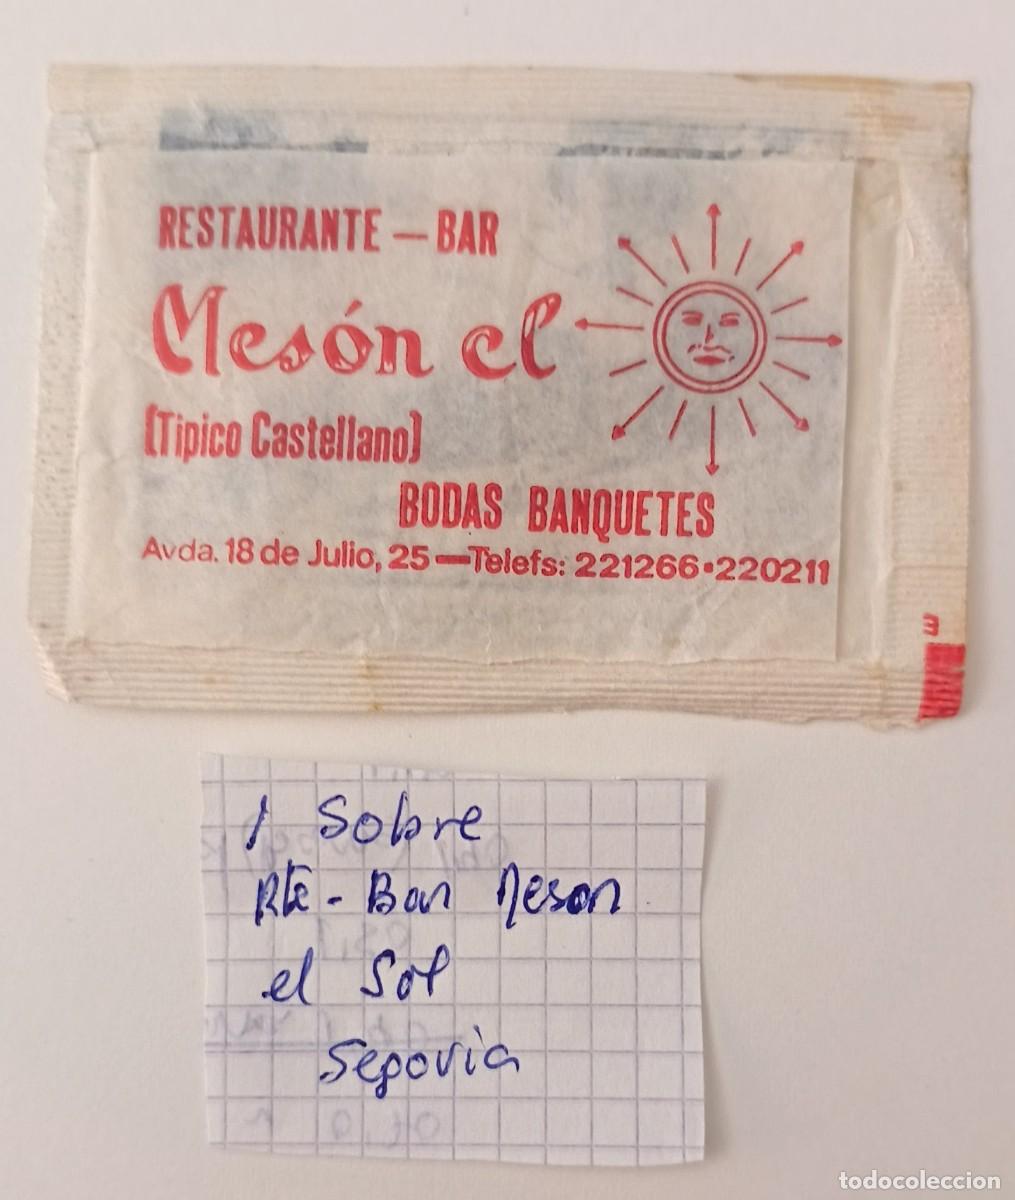 RESTAURANTE — BAR
Mesón el
(Tipico Castellano)
BODAS BANQUETES
Avda. 18 de Julio, 25 — Telefs: 221266 · 220211
1 Sobre
Rte - Bar Meson
el Sol
Segovia
todocoleccion